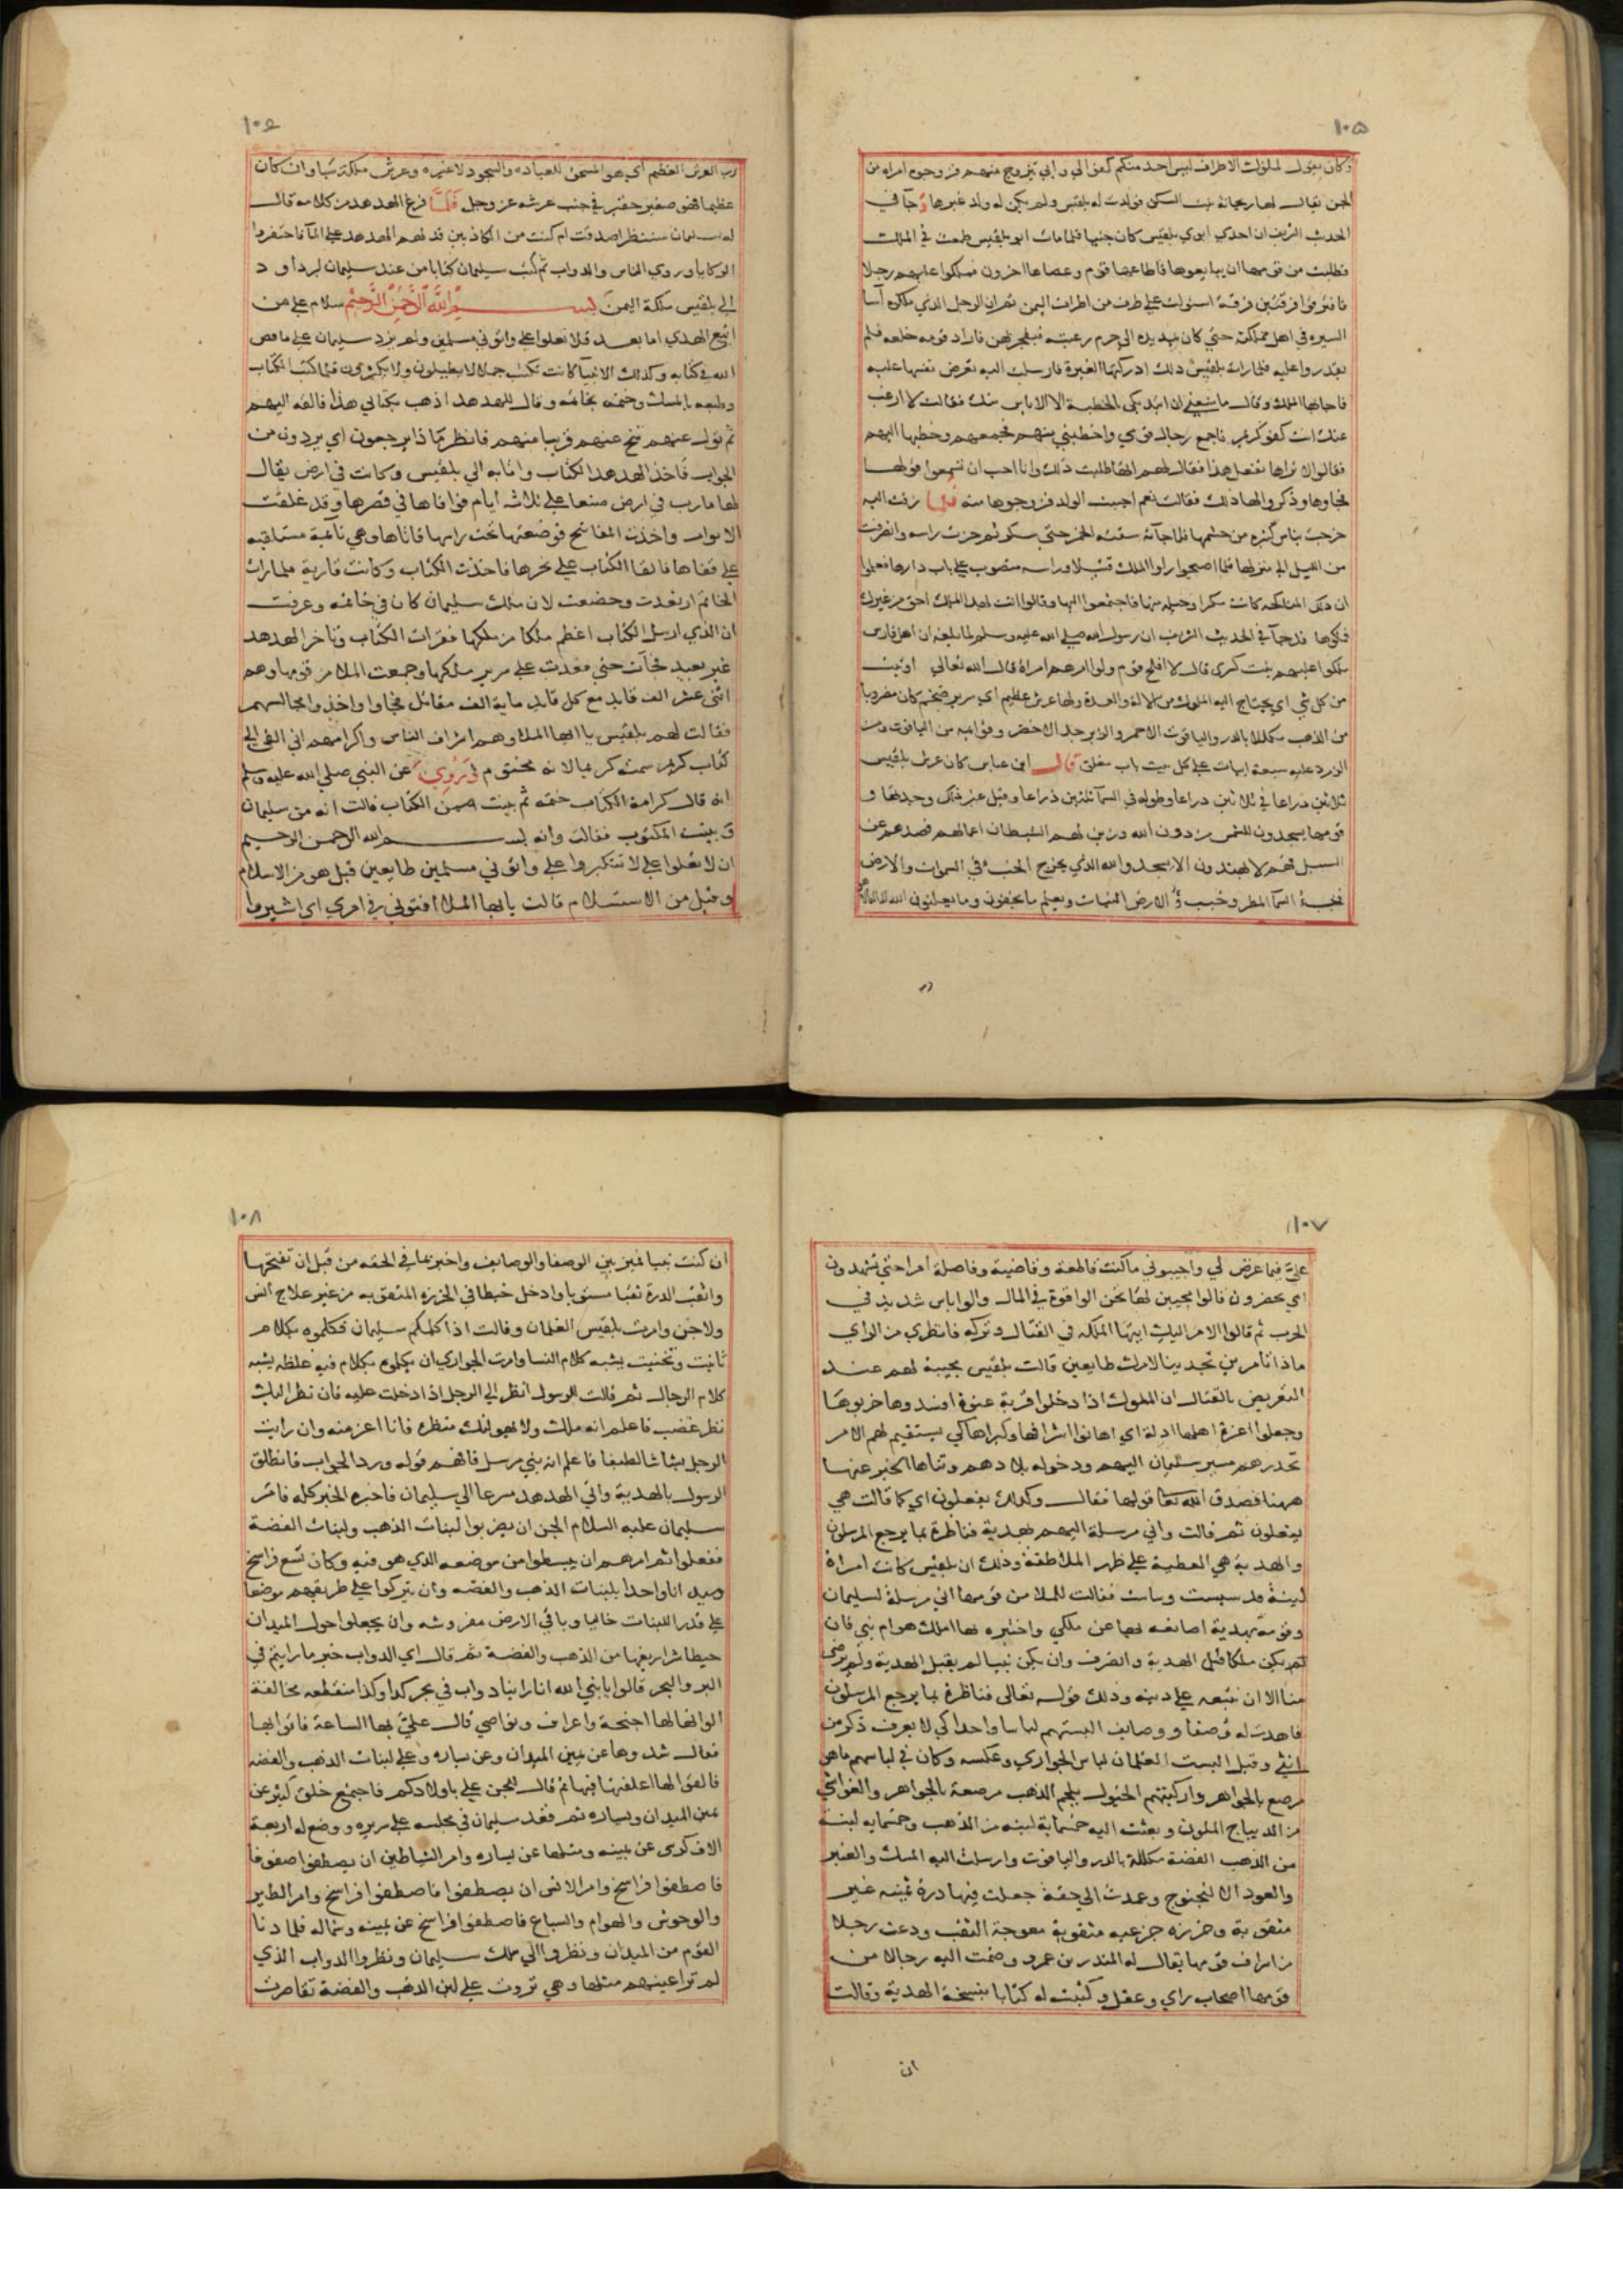 ١٠٥
وكان يقول لملوك الاطراف ليس احد منكم كفؤ الي وابي يتزوج منهم فزوجوه امراه من
الجن يقال لها ريحانة بنت السكن فولدت له بلقيس ولم يكن له ولد غيرها وجآ في
الحديث الشريف ان احدي ابوي بلقيس كان جنيا فلما مات ابو بلقيس طمعت في الملك
فطلبت من قومها ان يبايعوها فاطاعها قوم وعصاها اخرون فملكوا عليهم رجلا
فافترقوا فرقتين فرقة استولت علي طرف من اطراف اليمن ثم ان الرجل الذي ملكوه اسا
السيره في اهل مملكته حتي كان يمد يده الي حرم رعيته فيفجر بهن فاراد قومه خلعه فلم
يقدروا عليه فلما رات بلقيس ذلك ادركتها الغيرة فارسلت اليه تعرض نفسها عليه
فاجابها الملك وقال ما منعني ان ابتديكي بالخطبة الا الاياس منك فقالت لا ارغب
عنك انت كفو كريم فاجمع رجال قومي واخطبني منهم فجمعهم وخطبها اليهم
فقالوا لا نراها تفعل هذا فقال لهم انها طلبت ذلك وانا احب ان تسمعوا قولها
فجاوها وذكروا لها ذلك فقالت نعم احببت الولد فزوجوها منه فلما زفت اليه
خرجت بناس كثيره من حشمها فلما جآته سقته الخمر حتي سكر ثم حزت راسه وانصرفت
من الليل الي منزلها فلما اصبحوا راوا الملك قتيلا وراسه منصوب علي باب دارها فعلموا
ان ذلك المناكحه كانت مكرا وحيله منها فاجتمعوا اليها وقالوا انت لهذا الملك احق من غيرك
فملكوها قد جآ في الحديث الشريف ان رسول الله صلي الله عليه وسلم لما بلغه ان اهل فارس
ملكوا عليهم بنت كسري قال لا افلح قوم ولوا امرهم امراة قال الله تعالي اوتيت
من كل شي اي يحتاج اليه الملوك من الالة والعدة ولها عرش عظيم اي سرير ضخم كان مضروبا
من الذهب مكللا بالدر والياقوت الاحمر والزبرجد الاخضر وقوايمه من الياقوت ومن
الزمرد عليه سبعة ابيات علي كل بيت باب مغلق قال ابن عباس كان عرش بلقيس
ثلاثين دراعا في ثلاثين دراعا وطوله في السمآ ثلثين ذراعا وقيل غير ذلك وجدتها و
قومها يسجدون للشمس من دون الله وزين لهم الشيطان اعمالهم فصدهم عن
السبيل فهم لا يهتدون الا يسجدوا لله الذي يخرج الخبء في السموات والارض
فخبء السمآ المطر وخبء الارض النبات ويعلم ما يخفون وما يعلنون الله لا اله الا هو
رب
١٠٦
رب العرش العظيم اي هو المستحق للعبادة والسجود لا غيره وعرش ملكة سبا وان كان
عظيما فهو صغير حقير في جنب عرشه عز وجل فلما فرغ الهدهد من كلامه قال
له سليمان سننظر اصدقت ام كنت من الكاذبين فدلهم الهدهد علي المآ فاحتفروا
الركايا وروي الناس والدواب ثم كتب سليمان كتابا من عند سليمان ابن داود
الي بلقيس ملكة اليمن بسم الله الرحمن الرحيم سلام علي من
اتبع الهدي اما بعد فلا تعلوا علي واتوني مسلمين ولم يزد سليمان علي ما قص
الله في كتابه وكذلك الانبيآ كانت تكتب جملا لا يطيلون ولا يكثرون فلما كتب الكتاب
وطبعه بالمسك وختمه بخاتمه وقال للهدهد اذهب بكتابي هذا فالقه اليهم
ثم تول عنهم تنح عنهم قريبا منهم فانظر ماذا يرجعون اي يردون من
الجواب فاخذ الهدهد الكتاب واتا به الي بلقيس وكانت في ارض يقال
لها مارب في ارض صنعا علي ثلاثة ايام فوافاها في قصرها وقد غلقت
الابواب واخذت المفاتيح فوضعتها تحت راسها فاتاها وهي نآئمة مستلقيه
علي قفاها فالقا الكتاب علي نحرها فاخذت الكتاب وكانت قارية فلما رات
الخاتم ارتعدت وخضعت لان ملك سليمان كان في خاتمه وعرفت
ان الذي ارسل الكتاب اعظم ملكا من ملكها فقرات الكتاب وتاخر الهدهد
غير بعيد فجآت حتي قعدت علي سرير ملكها وجمعت الملا من قومها وهم
اثني عشر الف قايد مع كل قايد ماية الف مقاتل فجاوا واخذوا مجالسهم
فقالت لهم بلقيس يا ايها الملا وهم اشراف الناس واكرامهم اني القي الي
كتاب كريم سمته كريما لانه مختوم وروي عن النبي صلي الله عليه وسلم
انه قال كرامة الكتاب ختمه ثم بينت ممن الكتاب قالت انه من سليمان
وبينت المكتوب فقالت وانه بسم الله الرحمن الرحيم
ان لا تعلوا علي لا تتكبروا علي واتوني مسلمين طايعين قيل هو من الاسلام
وقيل من الاستسلام قالت يا ايها الملا افتوني في امري اي اشيروا
١٠٧
علي فيما عرض لي واجيبوني ما كنت قاطعة وقاضية وفاصلة امرا حتي تشهدون
اي تحضرون قالوا مجيبين لها نحن اولوا قوة في المال واولوا باس شديد في
الحرب ثم قالوا الامر اليك ايتها الملكه في القتال وتركه فانظري من الراي
ماذا تأمرين تجدينا لامرك طايعين قالت بلقيس مجيبة لهم عند
التعريض بالقتال ان الملوك اذا دخلوا قرية عنوة افسدوها خربوها
وجعلوا اعزة اهلها اذلة اي اهانوا اشرافها وكبراها كي يستقيم لهم الامر
تحذرهم مسير سليمان اليهم ودخوله بلادهم وتناها الخبر عنها
ههنا فصدق الله تعا قولها فقال وكذلك يفعلون اي كما قالت هي
يفعلون ثم قالت واني مرسلة اليهم بهدية فناظرة بما يرجع المرسلون
والهدية هي العطية علي ظهر الملاطفة وذلك ان بلقيس كانت امراة
لبيبة قد سيست وساست فقالت للملا من قومها اني مرسلة لسليمان
وقومه بهدية اصانعه بها عن ملكي واختبره بها املك هو ام نبي فان
لم يكن ملكا قبل الهدية وانصرف وان يكن نبيا لم يقبل الهدية ولم يرض
منا الا ان نتبعه علي دينه وذلك قوله تعالي فناظرة بما يرجع المرسلون
فاهدت له وصفا ووصايف البستهم لباسا واحدا كي لا يعرف ذكر من
انثي وقيل البست الغلمان لباس الجواري وعكسه وكان في لباسهم ما هو
مرصع بالجواهر واركبتهم الخيول بلجم الذهب مرصعة بالجواهر والغواشي
من الديباج الملون وبعثت اليه خمسماية لبنه من الذهب وخمسمايه لبنة
من الذهب الفضة مكللة بالدر والياقوت وارسلت اليه المسك والعنبر
والعود الالنجنوج وعمدت الي حقة جعلت فيها درة ثمينه غير
مثقوبة وخرزه جزعيه مثقوبة معوجة الثقب ودعت رجلا
من اشراف قومها يقال له المنذر بن عمرو وضمت اليه رجالا من
قومها اصحاب راي وعقل وكتبت له كتابا بنسخة الهدية وقالت
ان
١٠٨
ان كنت نبيا فميز بين الوصفا والوصايف واخبر بما في الحقه من قبل ان تفتحها
واثقب الدرة ثقبا مستويا وادخل خيطا في الخرزه المثقوبه من غير علاج انس
ولا جن وامرت بلقيس الغلمان وقالت اذا كلمكم سليمان فكلموه بكلام
تانيث وتخنيث يشبه كلام النسا وامرت الجواري ان يكلموه بكلام فيه غلظه يشبه
كلام الرجال ثم قالت للرسول انظر الي الرجل اذا دخلت عليه فان نظر اليك
نظر غضب فاعلم انه ملك ولا يهولنك منظره فانا اعز منه وان رايت
الرجل بشاشا لطيفا فاعلم انه نبي مرسل فافهم قوله ورد الجواب فانطلق
الرسول بالهدية واتي الهدهد مسرعا الي سليمان فاخبره الخبر كله فامر
سليمان عليه السلام الجن ان يضربوا لبنات الذهب ولبنات الفضة
ففعلوا ثم امرهم ان يبسطوا من موضعه الذي هو فيه وكان تسع فراسخ
ميدانا واحدا بلبنات الذهب والفضه وان يتركوا علي طريقهم موضعا
علي قدر اللبنات خاليا وباقي الارض مفروشه وان يجعلوا حول الميدان
حيطا شراريفها من الذهب والفضة ثم قال اي الدواب خير ما رايتم في
البر والبحر قالوا يا نبي الله انا راينا دواب في بحر كذا وكذا منقطعه مخالفة
الوانها لها اجنحة واعراف ونواصي قال علي بها الساعة فاتوا بها
فقال شدوها عن يمين الميدان وعن يساره وعلي لبنات الذهب والفضه
فالقوا لها اعلفتها فيها ثم قال للجن علي باولادكم فاجتمع خلق كثير عن
يمين الميدان ويساره ثم قعد سليمان في مجلسه علي سريره ووضع له اربعة
الاف كرسي عن يمينه ومثلها عن يساره وامر الشياطين ان يصطفوا صفوفا
فاصطفوا فراسخ وامر الانس ان يصطفوا فاصطفوا فراسخ وامر الطير
والوحوش والهوام والسباع فاصطفوا فراسخ عن يمينه وشماله فلما دنا
القوم من الميدان ونظروا الي ملك سليمان ونظروا الدواب الذي
لم تر اعينهم مثلها وهي تروث علي لبن الذهب والفضة تقاصرت